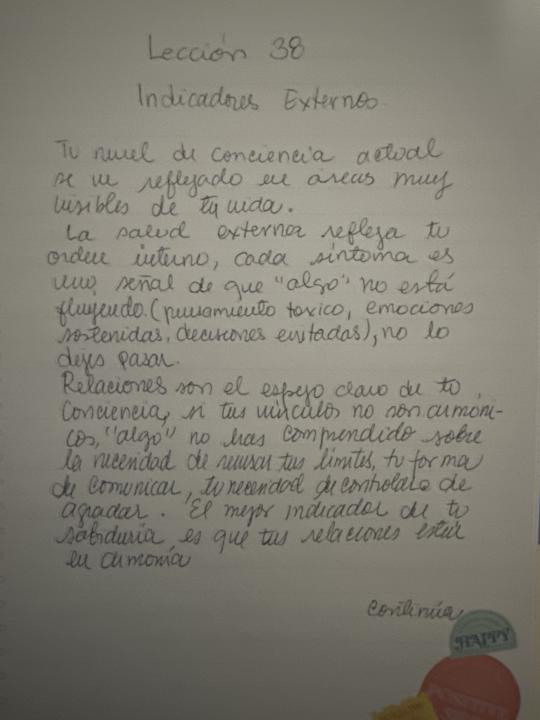 Lección 38
Indicadores Externos
Tu nivel de conciencia actual
se ve reflejado en áreas muy
visibles de tu vida.
La salud externa refleja tu
orden interno, cada síntoma es
una señal de que "algo" no está
fluyendo. (pensamiento toxico, emociones
sostenidas, decisiones evitadas), no lo
dejes pasar.
Relaciones son el espejo claro de tu
Conciencia, si tus vínculos no son armóni-
cos, "algo" no has comprendido sobre
la necesidad de revisar tus límites, tu forma
de comunicar, tu necesidad de controlar o de
agradar. El mejor indicador de tu
sabiduría es que tus relaciones estén
en armonía
Continúa
HAPPY